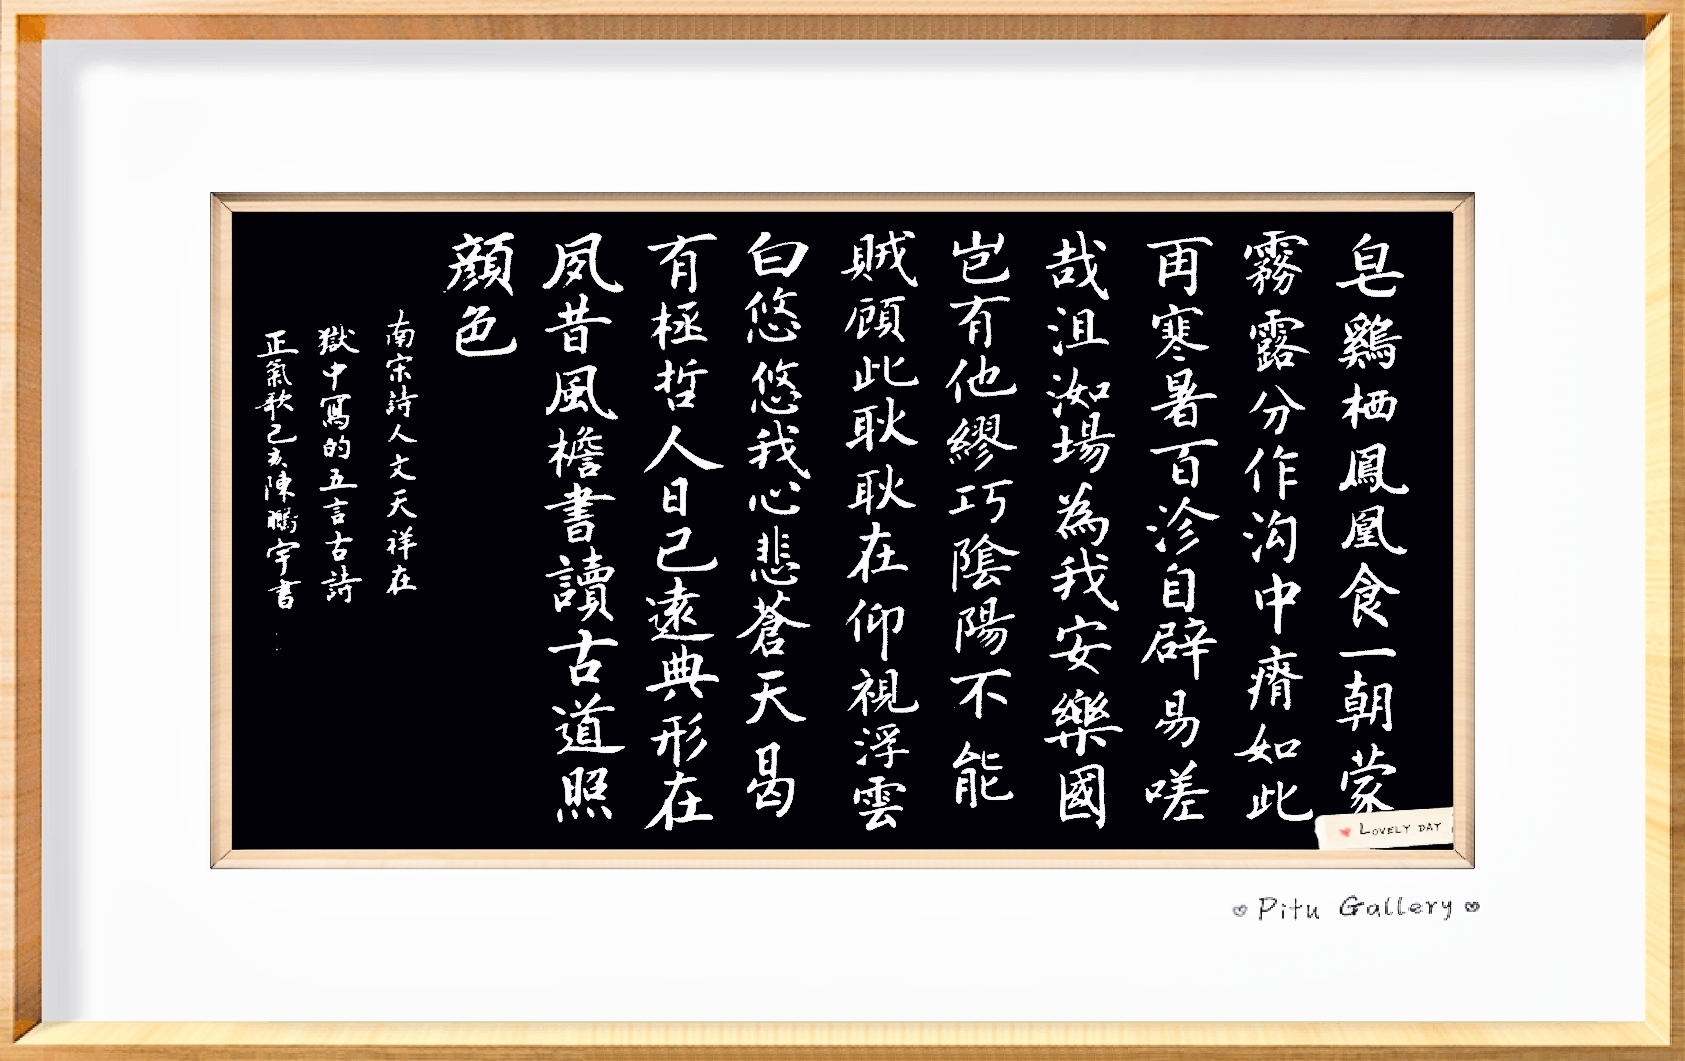 皂鷄栖鳳凰食一朝蒙
霧露分作沟中瘠如此
再寒暑百沴自辟易嗟
哉沮洳場為我安樂國
岂有他繆巧陰陽不能
賊顧此耿耿在仰視浮雲
白悠悠我心悲蒼天曷
有極哲人日已遠典形在
夙昔風檐書讀古道照
顔色
南宋詩人文天祥在
獄中寫的五言古詩
正氣歌己亥陳鵬宇書
LOVELY DAY
Pitu Gallery